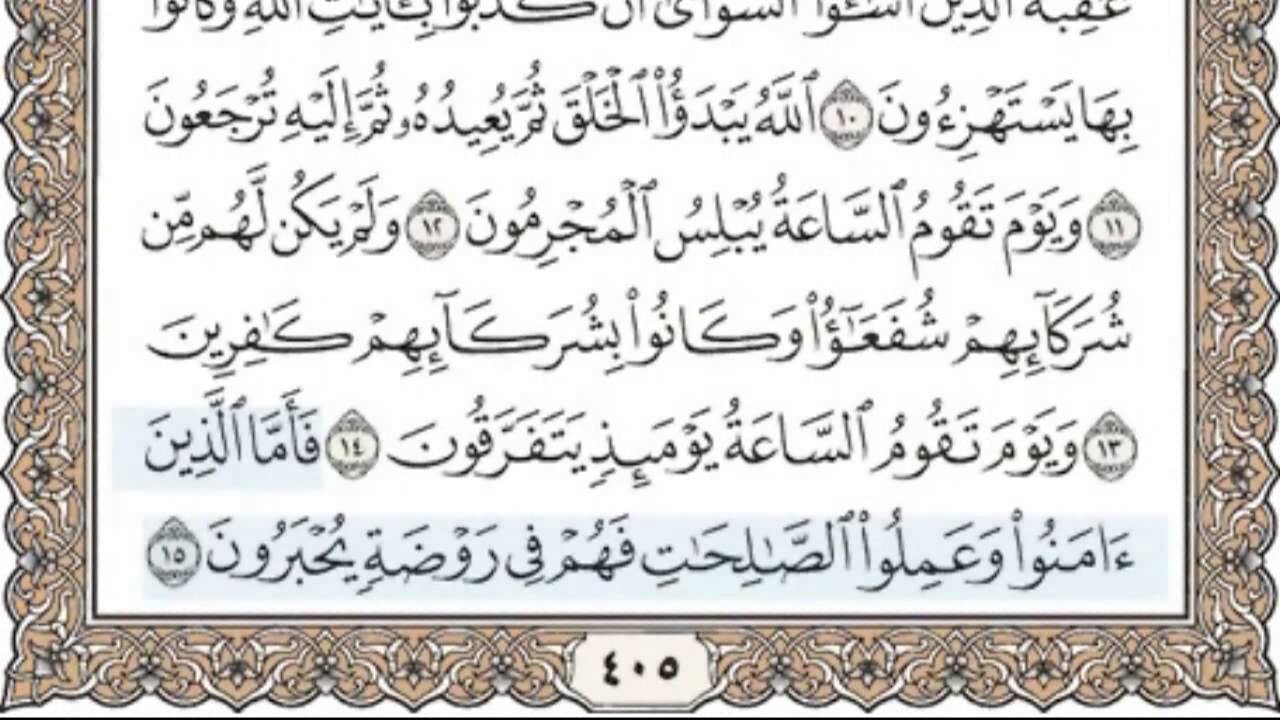 عَٰقِبَةَ ٱلَّذِينَ أَسَٰٓـُٔوا۟ ٱلسُّوٓأَىٰٓ أَن كَذَّبُوا۟ بِـَٔايَٰتِ ٱللَّهِ وَكَانُوا۟
بِهَا يَسْتَهْزِءُونَ ١٠ ٱللَّهُ يَبْدَؤُا۟ ٱلْخَلْقَ ثُمَّ يُعِيدُهُۥ ثُمَّ إِلَيْهِ تُرْجَعُونَ
١١ وَيَوْمَ تَقُومُ ٱلسَّاعَةُ يُبْلِسُ ٱلْمُجْرِمُونَ ١٢ وَلَمْ يَكُن لَّهُم مِّن
شُرَكَآئِهِمْ شُفَعَٰٓؤُا۟ وَكَانُوا۟ بِشُرَكَآئِهِمْ كَٰفِرِينَ
١٣ وَيَوْمَ تَقُومُ ٱلسَّاعَةُ يَوْمَئِذٍ يَتَفَرَّقُونَ ١٤ فَأَمَّا ٱلَّذِينَ
ءَامَنُوا۟ وَعَمِلُوا۟ ٱلصَّٰلِحَٰتِ فَهُمْ فِى رَوْضَةٍ يُحْبَرُونَ ١٥
٤٠٥